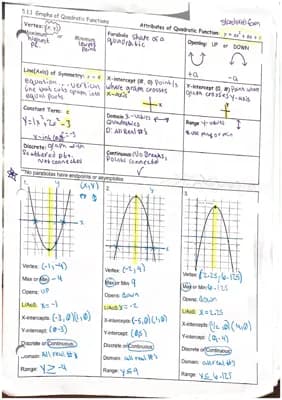 5.1.1 Graphs of Quadratic Functions
Attributes of Quadratic Function:
Vertex: (x, y)
Maximum
highest
pt.
Minimum
lowest
point
Parabola: shape of a
quadratic
Opening: UP or DOWN
+a
-a
Line(Axis) of Symmetry: x = #
equation
vertical
line that cuts graph into
equal parts
X-intercept (#, 0) point/s
where graph crosses
x-axis
Y-intercept (0, #) point where
graph crosses y-axis
Constant Term: c
Domain: x-values
Quadratics
D: All Real #'s
Range: y-values
Discrete: graph with
scattered pts.
Not connected
Continuous: No Breaks,
Points connected
*No parabolas have endpoints or asymptotes
(x, y)
1.
2.
3.
Vertex: (-1, -4)
Max or Min: -4
Opens: UP
LiAoS: x = -1
X-intercepts: (-3, 0) (1, 0)
Y-intercept: (0, -3)
Discrete or Continuous
Domain: All real #'s
Range: y ≥ -4
Vertex: (-2, 9)
Max or Min: 9
Opens: Down
LiAoS: x = -2
X-intercepts: (-5, 0) (1, 0)
Y-intercept: (0, 5)
Discrete or Continuous
Domain: all real #'s
Range: y ≤ 9
Vertex: (2.25, 6.125)
Max or Min: 6.125
Opens: Down
LiAoS: x = 2.25
Y-intercept: (0, -4)
Discrete or Continuous
Domain: all real #'s
Range: y ≤ 6.125